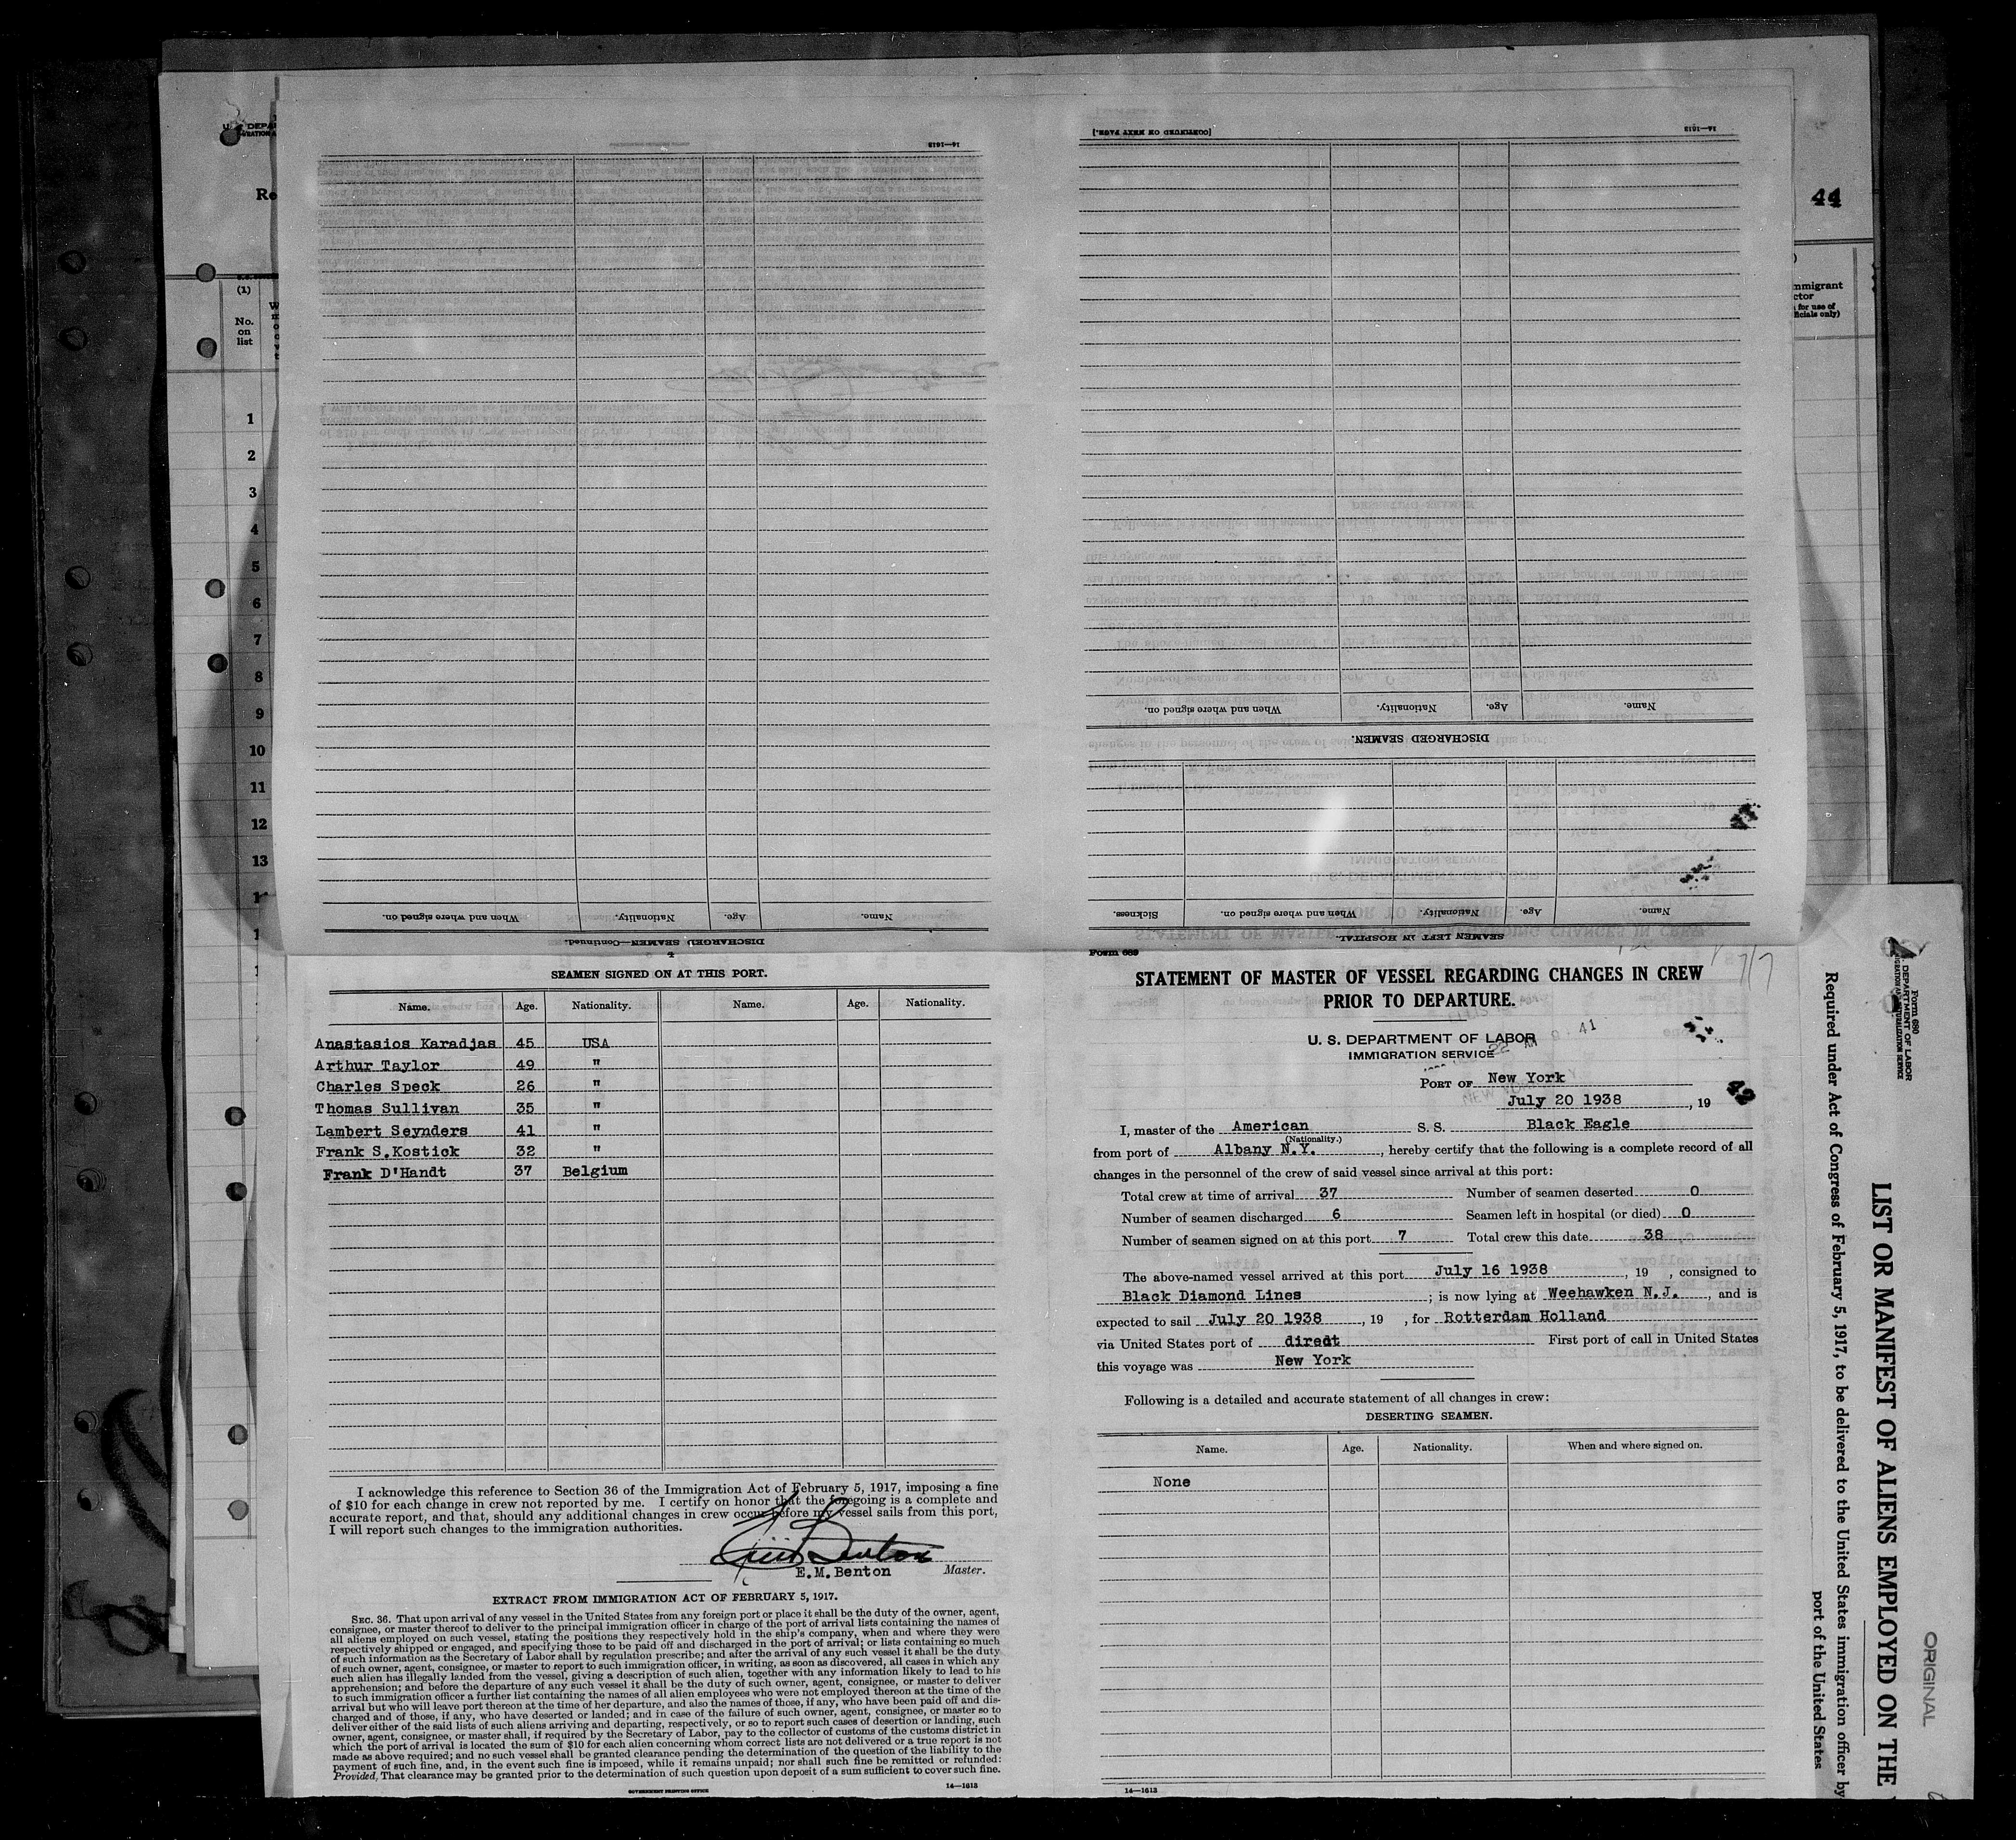 44
(1)
No.
on
list
1
2
3
4
5
6
7
8
9
10
11
12
13
mmigrant
ctor
for use of
ficials only)
[CONTINUED ON NEXT PAGE.]
14—1613
14—1613
Name.
Age.
Nationality.
When and where signed on.
DISCHARGED SEAMEN.
Name.
Age.
Nationality.
When and where signed on.
Sickness.
SEAMEN LEFT IN HOSPITAL.
Name.
Age.
Nationality.
When and where signed on.
DISCHARGED SEAMEN—Continued.
4
SEAMEN SIGNED ON AT THIS PORT.
Name. Age. Nationality. Name. Age. Nationality.
Anastasios Karadjas 45 USA
Arthur Taylor 49 "
Charles Speck 26 "
Thomas Sullivan 35 "
Lambert Seynders 41 "
Frank S.Kostick 32 "
Frank D'Handt 37 Belgium
I acknowledge this reference to Section 36 of the Immigration Act of February 5, 1917, imposing a fine
of $10 for each change in crew not reported by me. I certify on honor that the foregoing is a complete and
accurate report, and that, should any additional changes in crew occur before my vessel sails from this port,
I will report such changes to the immigration authorities.
E.M.Benton Master.
EXTRACT FROM IMMIGRATION ACT OF FEBRUARY 5, 1917.
SEC. 36. That upon arrival of any vessel in the United States from any foreign port or place it shall be the duty of the owner, agent,
consignee, or master thereof to deliver to the principal immigration officer in charge of the port of arrival lists containing the names of
all aliens employed on such vessel, stating the positions they respectively hold in the ship's company, when and where they were
respectively shipped or engaged, and specifying those to be paid off and discharged in the port of arrival; or lists containing so much
of such information as the Secretary of Labor shall by regulation prescribe; and after the arrival of any such vessel it shall be the duty
of such owner, agent, consignee, or master to report to such immigration officer, in writing, as soon as discovered, all cases in which any
such alien has illegally landed from the vessel, giving a description of such alien, together with any information likely to lead to his
apprehension; and before the departure of any such vessel it shall be the duty of such owner, agent, consignee, or master to deliver
to such immigration officer a further list containing the names of all alien employees who were not employed thereon at the time of the
arrival but who will leave port thereon at the time of her departure, and also the names of those, if any, who have been paid off and dis-
charged and of those, if any, who have deserted or landed; and in case of the failure of such owner, agent, consignee, or master so to
deliver either of the said lists of such aliens arriving and departing, respectively, or so to report such cases of desertion or landing, such
owner, agent, consignee, or master shall, if required by the Secretary of Labor, pay to the collector of customs of the customs district in
which the port of arrival is located the sum of $10 for each alien concerning whom correct lists are not delivered or a true report is not
made as above required; and no such vessel shall be granted clearance pending the determination of the question of the liability to the
payment of such fine, and, in the event such fine is imposed, while it remains unpaid; nor shall such fine be remitted or refunded:
Provided, That clearance may be granted prior to the determination of such question upon deposit of a sum sufficient to cover such fine.
GOVERNMENT PRINTING OFFICE 14—1613
Form 689
STATEMENT OF MASTER OF VESSEL REGARDING CHANGES IN CREW
PRIOR TO DEPARTURE.
U. S. DEPARTMENT OF LABOR
IMMIGRATION SERVICE
PORT OF New York
July 20 1938, 19
I, master of the American S. S. Black Eagle
(Nationality.)
from port of Albany N.Y., hereby certify that the following is a complete record of all
changes in the personnel of the crew of said vessel since arrival at this port:
Total crew at time of arrival 37 Number of seamen deserted 0
Number of seamen discharged 6 Seamen left in hospital (or died) 0
Number of seamen signed on at this port 7 Total crew this date 38
The above-named vessel arrived at this port July 16 1938, 19 , consigned to
Black Diamond Lines; is now lying at Weehawken N.J., and is
expected to sail July 20 1938, 19 , for Rotterdam Holland
via United States port of diredt First port of call in United States
this voyage was New York
Following is a detailed and accurate statement of all changes in crew:
DESERTING SEAMEN.
Name. Age. Nationality. When and where signed on.
None
14—1613
Form 680
DEPARTMENT OF LABOR
LIST OR MANIFEST OF ALIENS EMPLOYED ON THE
Required under Act of Congress of February 5, 1917, to be delivered to the United States immigration officer by
port of the United States
ORIGINAL